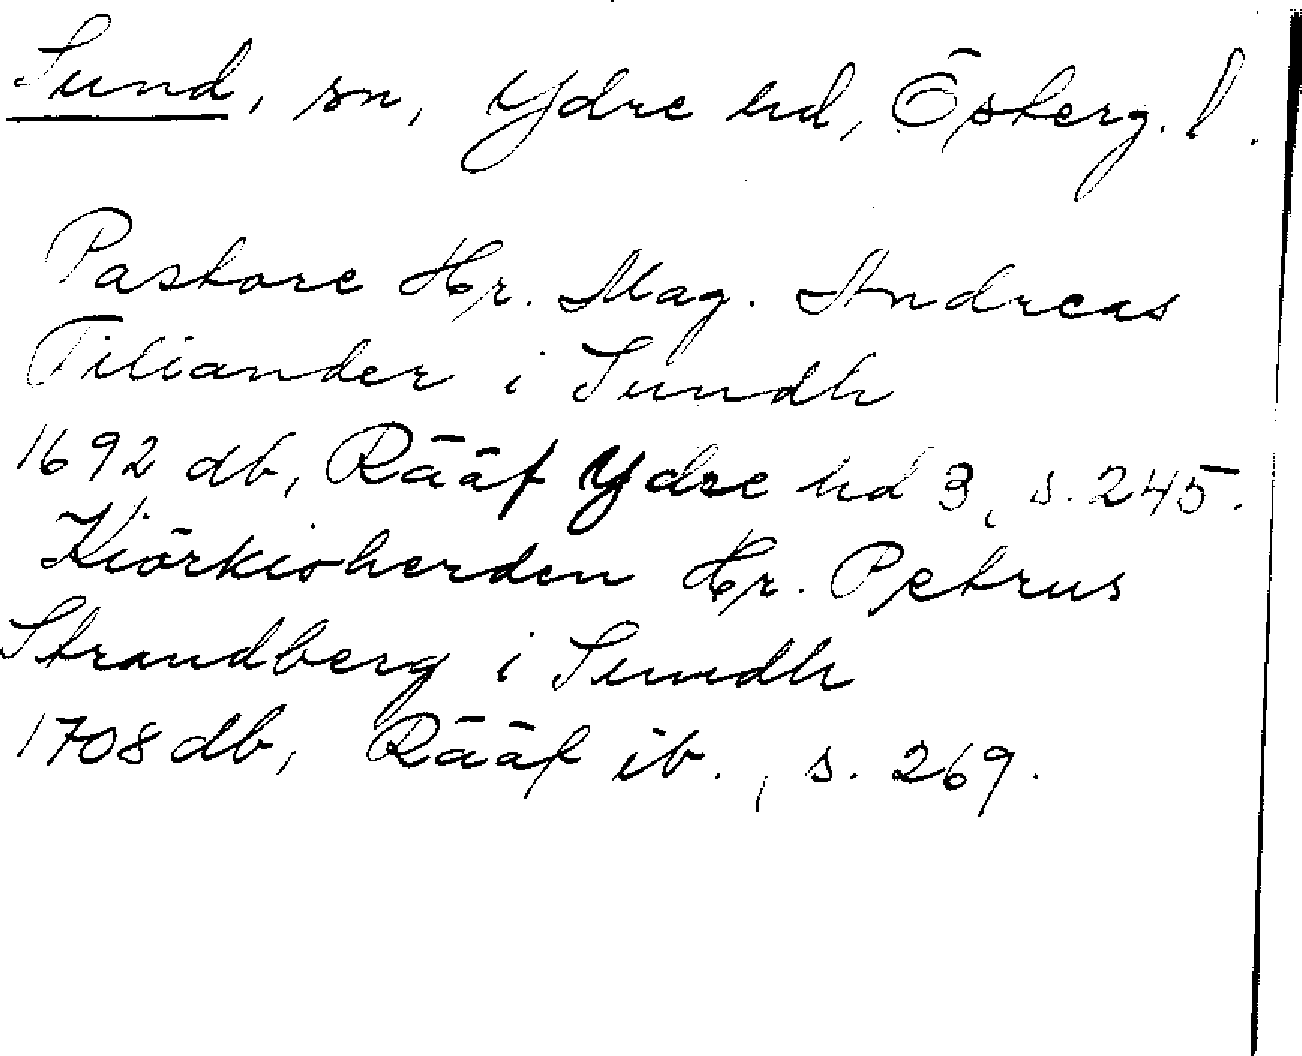 Sund, sn, Ydre hd, Österg. l.
Pastore Hr. Mag. Andreas
Tiliander i Sundh
1692 db, Rääf Ydre hd 3, s. 245.
Kiörkioherden Hr. Petrus
Strandberg i Sundh
1708 db, Rääf ib., s. 269.